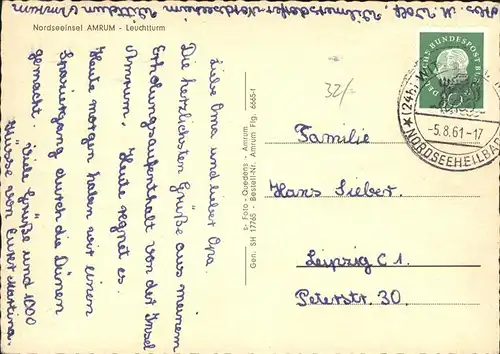 Abs. M. Wolff Wilmersdorfer-Nordseeheim Wittdün Amrum
Nordseeinsel AMRUM - Leuchtturm
Liebe Oma und lieber Opa.
Die herzlichsten Grüße aus meinem
Erholungsaufenthalt von der Insel
Amrum. Heute regnet es.
Heute morgen haben wir einen
Spaziergang durch die Dünen
gemacht. Viele Grüße und 1000
Küsse von Eurer Martina.
Foto-Quedens - Amrum
Gen. SH 17765 - Bestell-Nr. Amrum Flg. 6665-1
32/-
DEUTSCHE BUNDESPOST
(24b)
-5.8.61-17
NORDSEEHEILBAD
Familie
Hans Sieber.
Leipzig C 1.
Peterstr. 30.